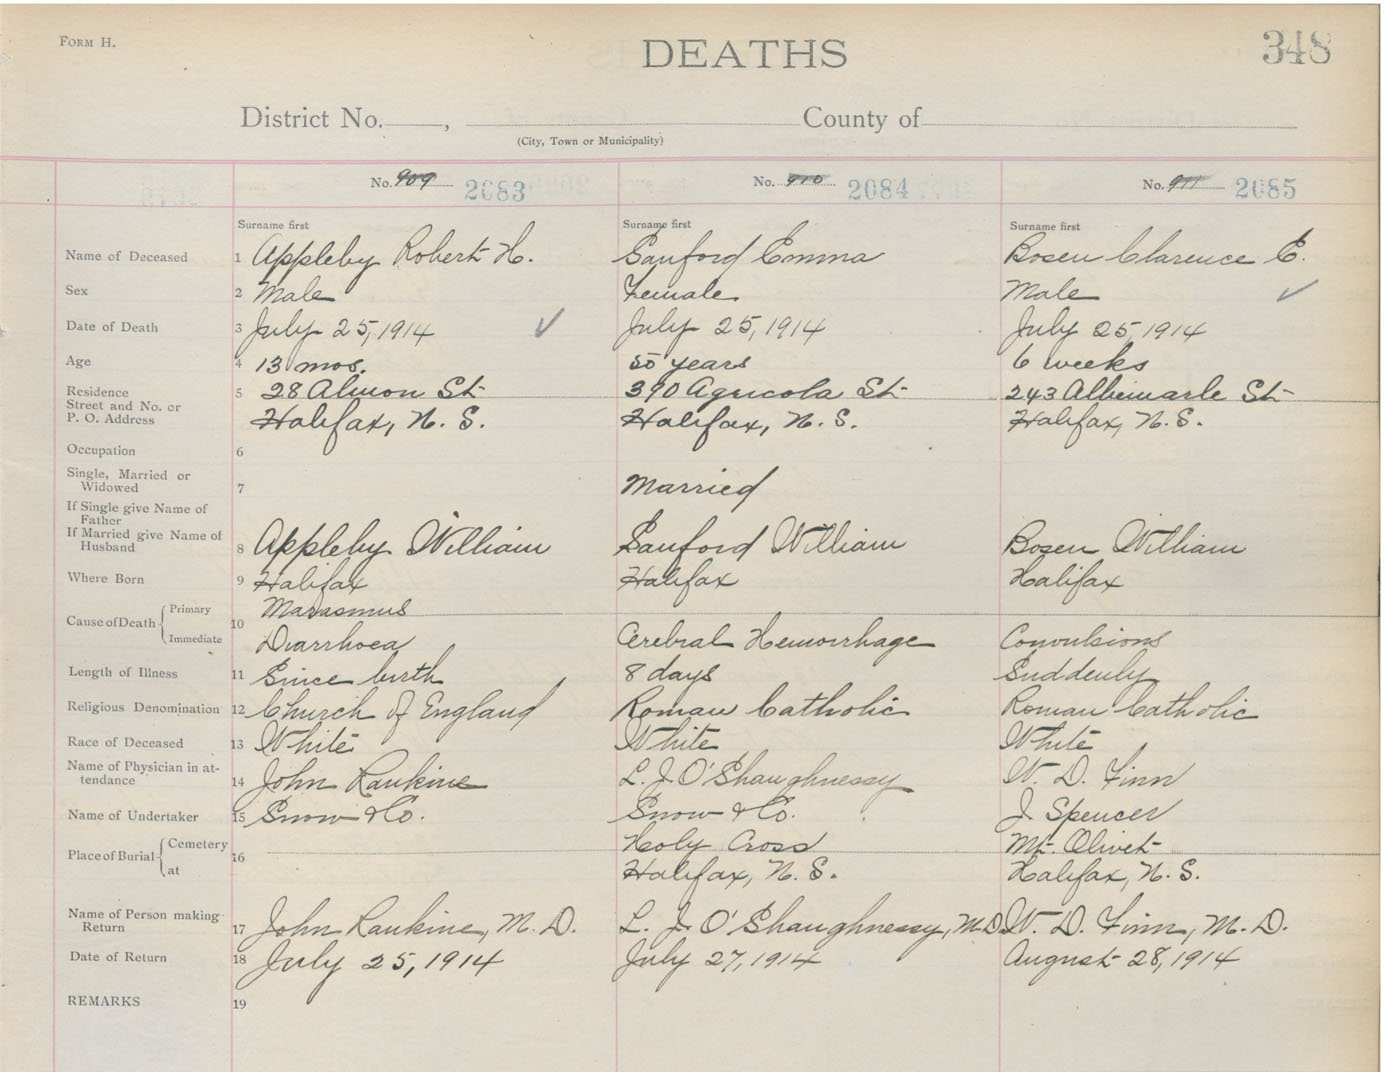 FORM H.
DEATHS
348
District No. , County of
(City, Town or Municipality)
No. 909 2083 No. 910 2084 No. 911 2085
Surname first Surname first Surname first
Name of Deceased 1 Appleby Robert H. Sanford Emma Bosen Clarence E.
Sex 2 Male Female Male
Date of Death 3 July 25, 1914 July 25, 1914 July 25, 1914
Age 4 13 mos. 50 years 6 weeks
Residence 5 28 Almon St 390 Agricola St 243 Albemarle St
Street and No. or
P. O. Address Halifax, N. S. Halifax, N. S. Halifax, N. S.
Occupation 6
Single, Married or
Widowed 7 Married
If Single give Name of
Father
If Married give Name of
Husband 8 Appleby William Sanford William Bosen William
Where Born 9 Halifax Halifax Halifax
Cause of Death Primary 10 Marasmus
Immediate Diarrhoea Cerebral Hemorrhage Convulsions
Length of Illness 11 Since birth 8 days Suddenly
Religious Denomination 12 Church of England Roman Catholic Roman Catholic
Race of Deceased 13 White White White
Name of Physician in at-
tendance 14 John Rankine L. J. O'Shaughnessy W. D. Finn
Name of Undertaker 15 Snow & Co. Snow & Co. J. Spencer
Place of Burial Cemetery 16 Holy Cross Mt. Olivet
at Halifax, N. S. Halifax, N. S.
Name of Person making
Return 17 John Rankine, M. D. L. J. O'Shaughnessy, M.D. W. D. Finn, M. D.
Date of Return 18 July 25, 1914 July 27, 1914 August 28, 1914
REMARKS 19